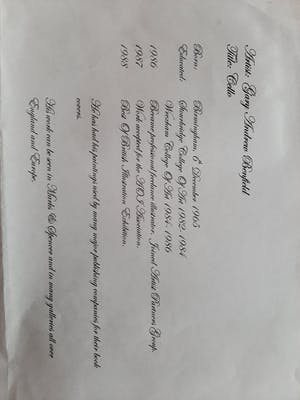 Artist: Gary Andrew Benfield
Title: Cello
Born: Birmingham, 6 December 1965
Educated: Stourbridge College Of Art 1982-1984
Wrexham College Of Art 1984-1986
1986 Became professional freelance illustrator, Joined Artist Partners Group.
1987 Work accepted for the AOI Association.
1988 Best Of British Illustration Exhibition.
He has had his paintings used by many major publishing companies for their book
covers.
His work can be seen in Marks & Spencer and in many galleries all over
England and Europe.